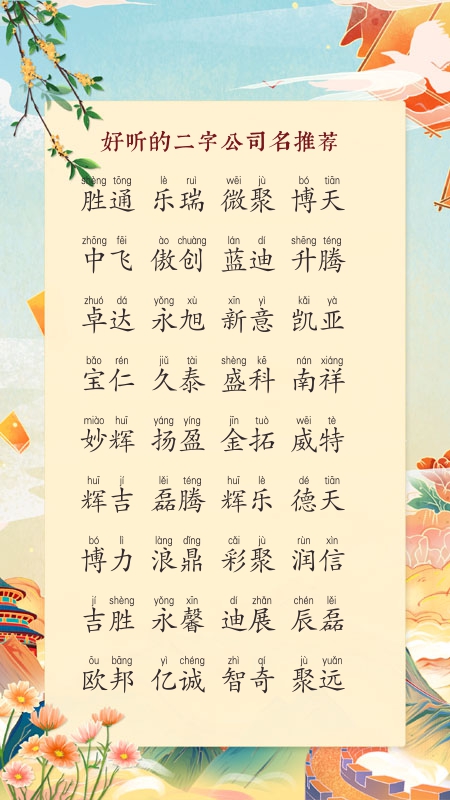 好听的二字公司名推荐
shèng tōng lè ruì wēi jù bó tiān
胜通 乐瑞 微聚 博天
zhōng fēi ào chuàng lán dí shēng téng
中飞 傲创 蓝迪 升腾
zhuó dá yǒng xù xīn yì kǎi yà
卓达 永旭 新意 凯亚
bǎo rén jiǔ tài shèng kē nán xiáng
宝仁 久泰 盛科 南祥
miào huī yáng yíng jīn tuò wēi tè
妙辉 扬盈 金拓 威特
huī jí lěi téng huī lè dé tiān
辉吉 磊腾 辉乐 德天
bó lì làng dǐng cǎi jù rùn xìn
博力 浪鼎 彩聚 润信
jí shèng yǒng xīn dí zhǎn chén lěi
吉胜 永馨 迪展 辰磊
ōu bāng yì chéng zhì qí jù yuǎn
欧邦 亿诚 智奇 聚远